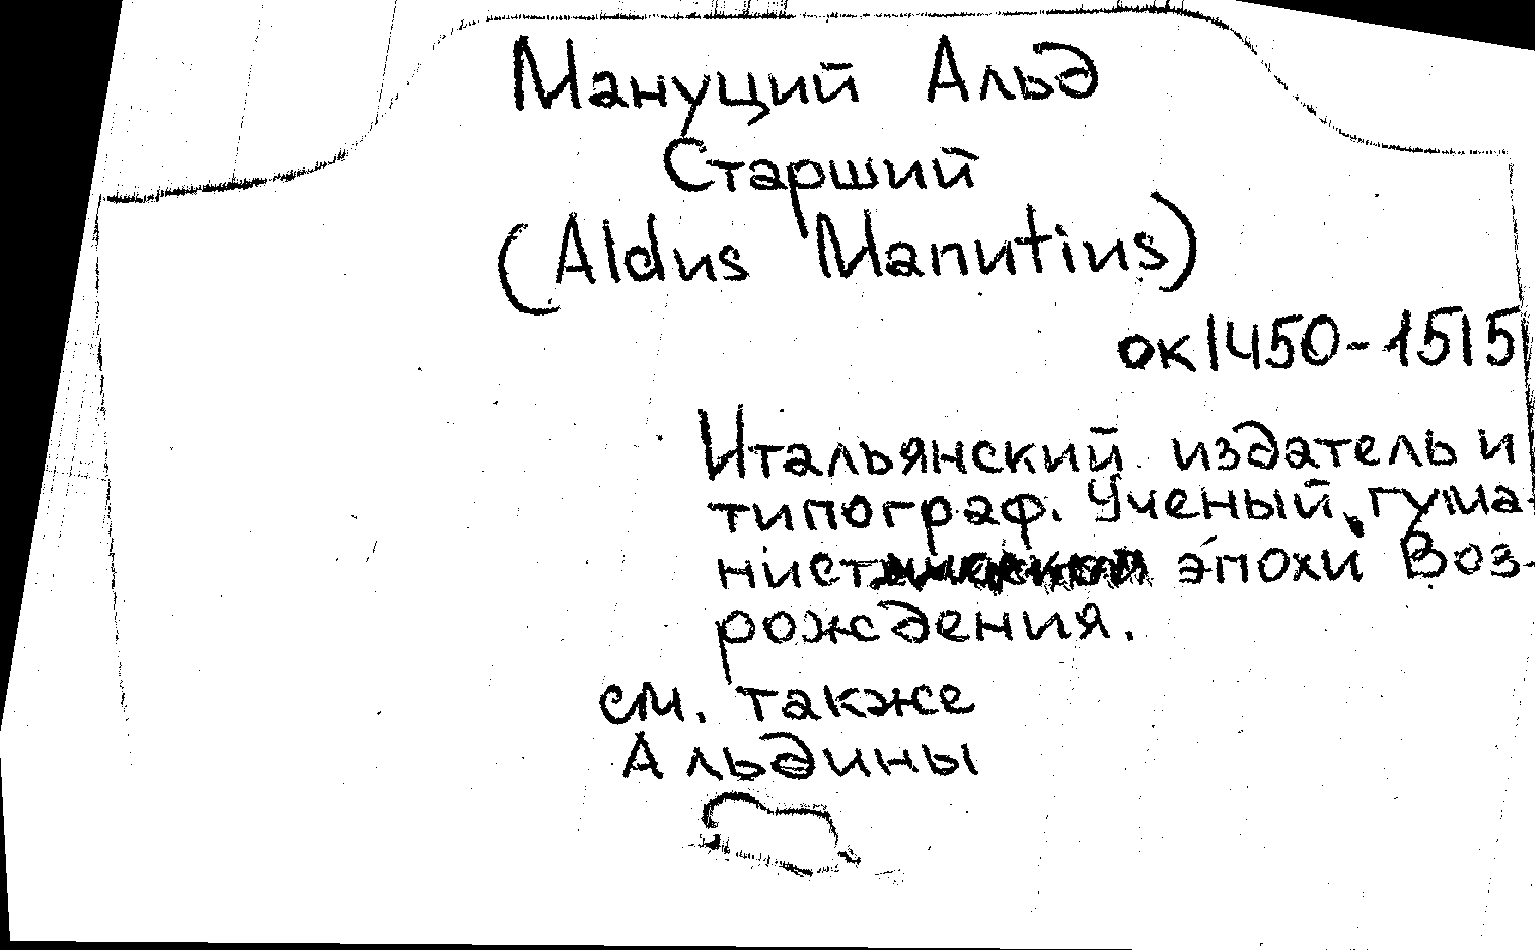 Мануций Альд
Старший
(Aldus Manutius)
ок 1450-1515
Итальянский издатель и
типограф. Ученый, гума-
нист эпохи Воз-
рождения.
см. также
Альдины